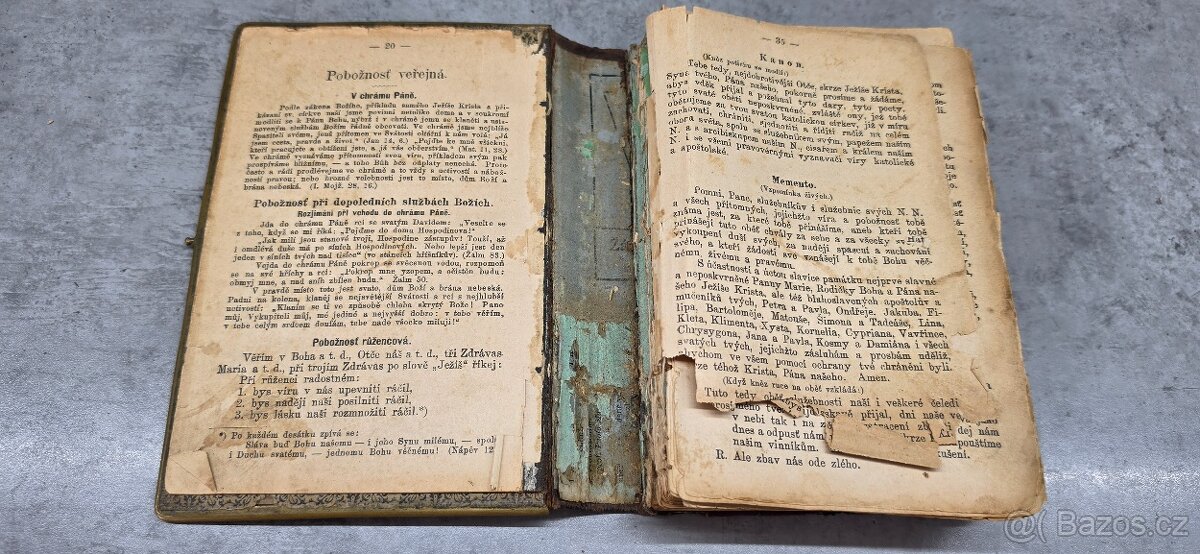 — 20 —
Pobožnosť veřejná.
V chrámu Páně.
Podle zákona Božího, příkladu samého Ježíše Krista a při-
kázaní sv. církve naší jsme povinni netoliko doma a v soukromí
modliti se k Pánu Bohu, nýbrž i v chrámě jemu se klaněti a usta-
noveným službám Božím řádně obcovati. Ve chrámě jsme nejblíže
Spasiteli svému, jenž přítomen ve Svátosti oltářní k nám volá: „Já
jsem cesta, pravda a život“ (Jan 14, 6.) „Pojďte ke mně všickni,
kteří pracujete a obtíženi jste, a já vás občerstvím.“ (Mat. 11, 28.)
Ve chrámě vyznáváme přítomností svou víru, příkladem svým pak
prospíváme bližním, — a toho Bůh bez odplaty nenechá. Proto
často a rádi prodlévejme ve chrámě a to vždy s uctivostí a nábož-
ností pravou; nebo hrozné velebnosti jest to místo, dům Boží a
brána nebeská. (I. Mojž. 28, 16.)
Pobožnosť při dopoledních službách Božích.
Rozjímání při vchodu do chrámu Páně.
Jda do chrámu Páně rci se svatým Davidem: „Veselte se
z toho, když se mi říká: „Pojďme do domu Hospodinova!“
„Jak milí jsou stanové tvoji, Hospodine zástupův! Touží, až
i omdlévá duše má po síních Hospodinových. Nebo lepší jest den
jeden v síních tvých nad tisíce“ (ve stáncích hříšníkův). (Žalm 83.)
Vejda do chrámu Páně pokrop se svěcenou vodou, rozpomeň
se na své hříchy a rci: „Pokrop mne yzopem, a očištěn budu:
obmyj mne, a nad sníh zbílen budu.“ Žalm 50.
V pravdě místo toto jest svato, dům Boží a brána nebeská.
Padni na kolena, klaněj se nejsvětější Svátosti a rci s nejhlubší
uctivostí: „Klaním se ti ve způsobě chleba skrytý Bože! Pane
můj, Vykupiteli můj, mé jediné a nejvyšší dobro: v tobě věřím,
v tobě celým srdcem doufám, tebe nade všecko miluji!“
Pobožnosť růžencová.
Věřím v Boha a t. d., Otče náš a t. d., tři Zdrávas
Maria a t. d., při trojím Zdrávas po slově „Ježíš“ říkej:
Při růženci radostném:
1. bys víru v nás upevniti ráčil,
2. bys naději naši posilniti ráčil,
3. bys lásku naši rozmnožiti ráčil.*)
*) Po každém desátku zpívá se:
Sláva buď Bohu našemu — i jeho Synu milému, — spolu
i Duchu svatému, — jednomu Bohu věčnému! (Nápěv 12
— 35 —
Kanon.
(Kněz potichu se modlí:)
Tebe tedy, nejdobrotivější Otče, skrze Ježíše Krista,
Syna tvého, Pána našeho, pokorně prosíme a žádáme,
abys vděk přijal a požehnal tyto dary, tyto pocty.
tyto svaté oběti neposkvrněné, zvláště ony, jež tobě
obětujeme za tvou svatou katolickou církev, již v míru
zachovati, chrániti, sjednotiti a říditi račiž na celém
oboru světa, spolu se služebníkem svým, papežem naším
N. a arcibiskupem naším N., císařem a králem naším
N. i se všemi pravověrnými vyznavači víry katolické
a apoštolské.
Memento.
(Vzpomínka živých.)
Pomni, Pane, služebníkův i služebnic svých N. N.
a všech přítomných, jejichžto víra a pobožnost tobě
známa jest, za které tobě přinášíme, aneb kteří tobě
přinášejí tuto oběť chvály za sebe a za všecky své,
vykoupení duší svých, za naději spasení a zachování
svého, a kteří žádosti své vznášejí k tobě Bohu věč-
nému, živému a pravému.
S účastností a úctou slavíce památku nejprve slavné
a neposkvrněné Panny Marie, Rodičky Boha a Pána na-
šeho Ježíše Krista, ale též blahoslavených apoštolův a
mučeníků tvých, Petra a Pavla, Ondřeje, Jakuba, Fi-
lipa, Bartoloměje, Matouše, Šimona a Tadeáše, Lina,
Kleta, Klimenta, Xysta, Kornelia, Cypriana, Vavřince,
Chrysygona, Jana a Pavla, Kosmy a Damiána i všech
svatých tvých, jejichžto zásluhám a prosbám uděliž,
bychom ve všem pomocí ochrany tvé chráněni byli.
rze téhož Krista, Pána našeho. Amen.
(Když kněz ruce na oběť vzkládá:)
Tuto tedy oběť služebnosti naší i veškeré čeledi
přijal, dni naše
v nebi tak i na
dnes a odpusť nám
našim vinníkům.
dej nám
pouštíme
kušení.
R. Ale zbav nás ode zlého.
Bazos.cz